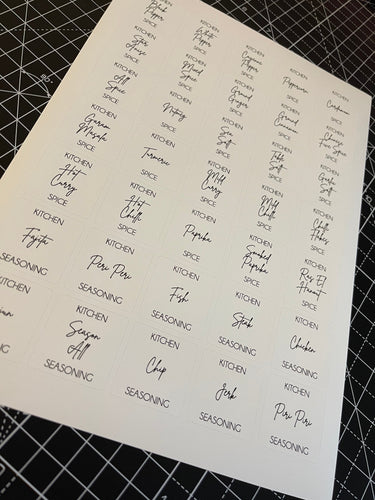 Black
Pepper
SPICE
KITCHEN
White
Pepper
SPICE
KITCHEN
Cayenne
Pepper
SPICE
KITCHEN
Peppercorn
SPICE
KITCHEN
SPICE
KITCHEN
Star
Anise
SPICE
KITCHEN
Mixed
Spice
SPICE
KITCHEN
Ground
Ginger
SPICE
KITCHEN
Ground
Cinnamon
SPICE
KITCHEN
Chinese
Five Spice
SPICE
KITCHEN
All
Spice
SPICE
KITCHEN
Nutmeg
SPICE
KITCHEN
Sea
Salt
SPICE
KITCHEN
Table
Salt
SPICE
KITCHEN
Garlic
Salt
SPICE
KITCHEN
Garam
Masala
SPICE
KITCHEN
Turmeric
SPICE
KITCHEN
Mild
Curry
SPICE
KITCHEN
Mild
Chilli
SPICE
KITCHEN
Chilli
Flakes
SPICE
KITCHEN
Hot
Curry
SPICE
KITCHEN
Hot
Chilli
SPICE
KITCHEN
Paprika
SPICE
KITCHEN
Smoked
Paprika
SPICE
KITCHEN
Ras El
Hanout
SPICE
KITCHEN
Fajita
SEASONING
KITCHEN
Peri Peri
SEASONING
KITCHEN
Fish
SEASONING
KITCHEN
Steak
SEASONING
KITCHEN
Chicken
SEASONING
KITCHEN
KITCHEN
Season
All
SEASONING
KITCHEN
Chip
SEASONING
KITCHEN
Jerk
SEASONING
KITCHEN
Piri Piri
SEASONING